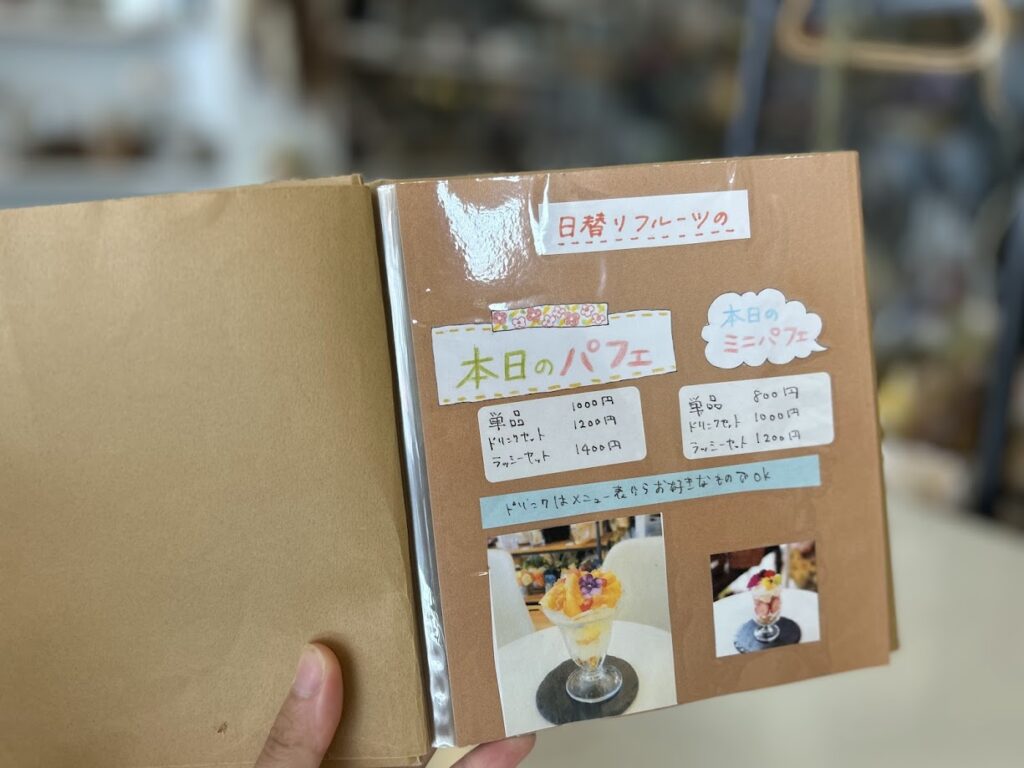 日替りフルーツの
本日のパフェ
単品 1000円
ドリンクセット 1200円
ラッシーセット 1400円
本日の
ミニパフェ
単品 800円
ドリンクセット 1000円
ラッシーセット 1200円
ドリンクはメニュー表からお好きなものでOK